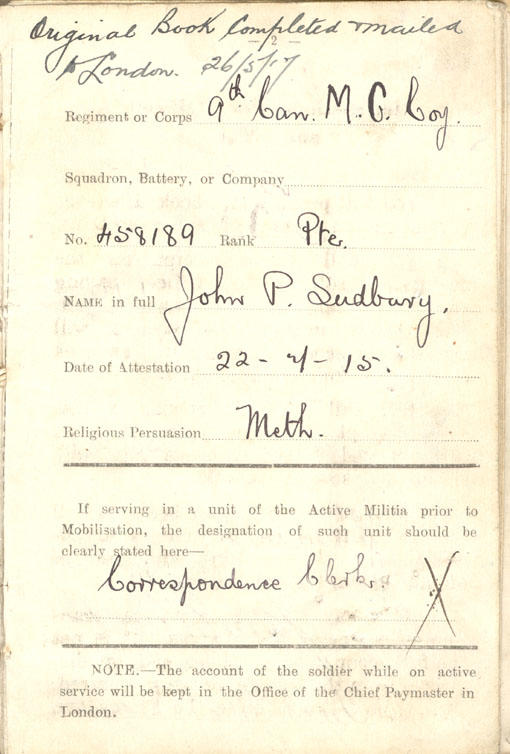 Original Book Completed & mailed
– 2 –
to London. 26/5/17
Regiment or Corps 9th Can. M. G. Coy.
Squadron, Battery, or Company
No. 458189 Rank Pte.
NAME in full John P. Sudbury.
Date of Attestation 22 - 7 - 15.
Religious Persuasion Meth.
If serving in a unit of the Active Militia prior to
Mobilisation, the designation of such unit should be
clearly stated here—
Correspondence Clerk. X
NOTE.—The account of the soldier while on active
service will be kept in the Office of the Chief Paymaster in
London.